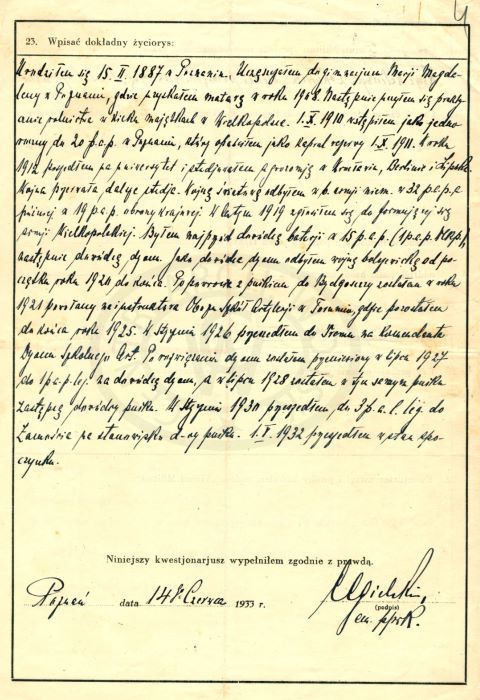 4
23. Wpisać dokładny życiorys:
Urodziłem się 15. II. 1887 w Poznaniu. Uczęszczałem do gimnazjum Marji Magda-
leny w Poznaniu, gdzie uzyskałem maturę w roku 1908. Następnie uczyłem się prakty-
cznie rolnictwa w kilku majątkach w Wielkopolsce. 1.X.1910 wstąpiłem jako jedno-
roczny do 20 p.a.p. w Poznaniu, który opuściłem jako kapral rezerwy 1.X.1911. W roku
1912 poszedłem na uniwersytet i studjowałem agronomję w Wrocławiu, Berlinie i Lipsku.
Wojna przerwała dalsze studja. Wojnę światową odbyłem w b. armji niem. w 32 p.a.p. a
później w 19 p.a.p. obrony krajowej. W lutym 1919 zgłosiłem się do formującej się
armji Wielkopolskiej. Byłem najpierw dowódcą baterji w 15 p.a.p. (1 p.a.p. Wlkp.),
następnie dowódcą dyonu. Jako dowódca dyonu odbyłem wojnę bolszewicką od po-
czątku roku 1920 do końca. Po powrocie z pułkiem do Bydgoszczy zostałem w roku
1921 powołany na instruktora Obozu Szkół Artylerji w Toruniu, gdzie pozostałem
do końca roku 1925. W styczniu 1926 przeszedłem do Torunia na Komendanta
Dyonu Szkolnego Art. Po rozwiązaniu dyonu zostałem przeniesiony w lipcu 1927
do 1 p.a.p. leg. na dowódcę dyonu, a w lipcu 1928 zostałem w tym samym pułku
zastępcą dowódcy pułku. W styczniu 1930 przeszedłem do 3 p.a.l. leg. do
Zamościa na stanowisko d-cy pułku. 1.V.1932 przeszedłem w stan spo-
czynku.
Niniejszy kwestjonarjusz wypełniłem zgodnie z prawdą.
Poznań data 14 Czerwca 1933 r.
(podpis)
em. ppłk.